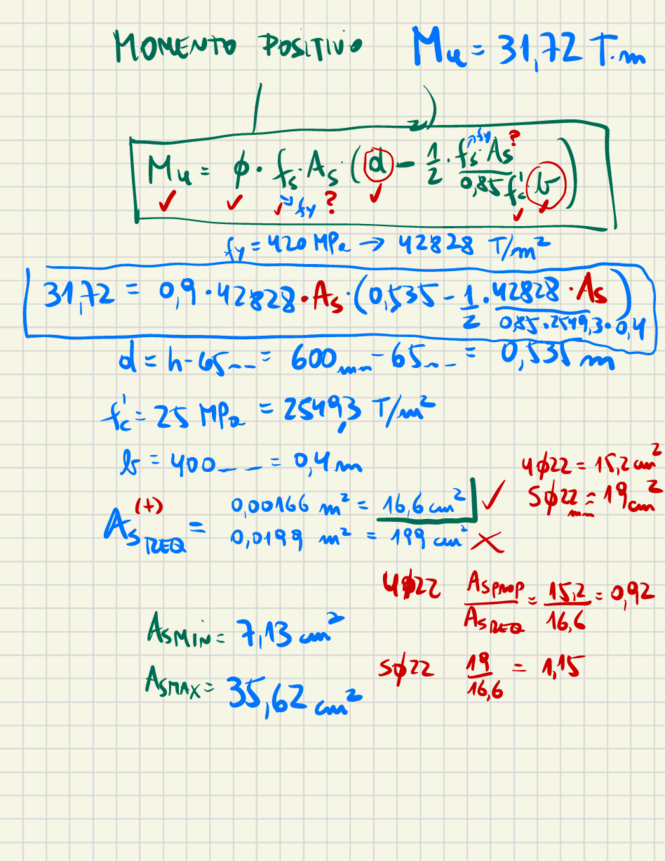 MOMENTO POSITIVO Mu = 31,72 T.m
Mu = φ · fs · As · (d - 1/2 · fs · As / 0,85 f'c b)
fy ? fy ?
fy = 420 MPa → 42828 T/m²
31,72 = 0,9 · 42828 · As · (0,535 - 1/2 · 42828 · As / 0,85 · 2549,3 · 0,4)
d = h - 65 = 600 mm - 65 = 0,535 m
f'c = 25 MPa = 2549,3 T/m²
b = 400 = 0,4 m
4φ22 = 15,2 cm²
5φ22 = 19 cm²
mm
As REQ (+) = 0,00166 m² = 16,6 cm² ✓
0,0199 m² = 199 cm² ✗
4φ22 As PROP / As REQ = 15,2 / 16,6 = 0,92
As MIN = 7,13 cm²
5φ22 19 / 16,6 = 1,15
As MAX = 35,62 cm²